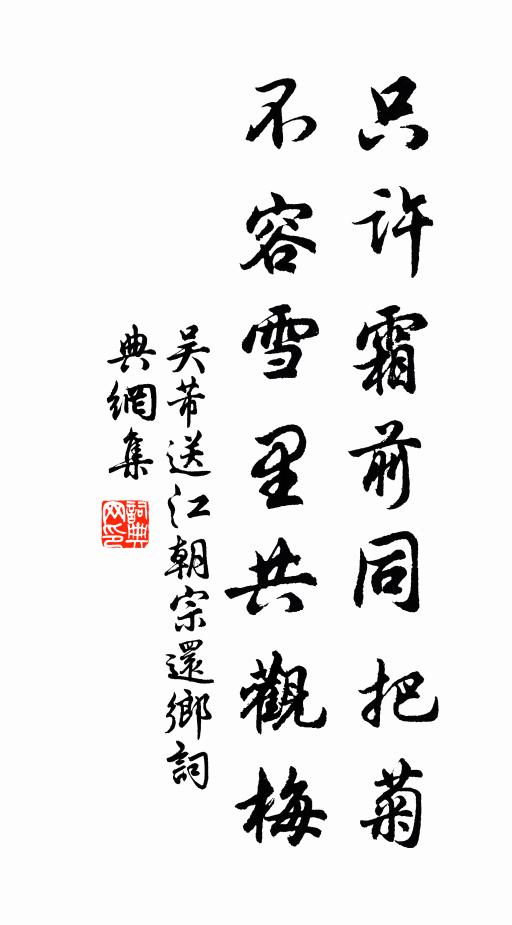 只许霜前同把菊
不容雪里共觀梅
吴芾送江朝宗還鄉詞
典網集
詞典
网印